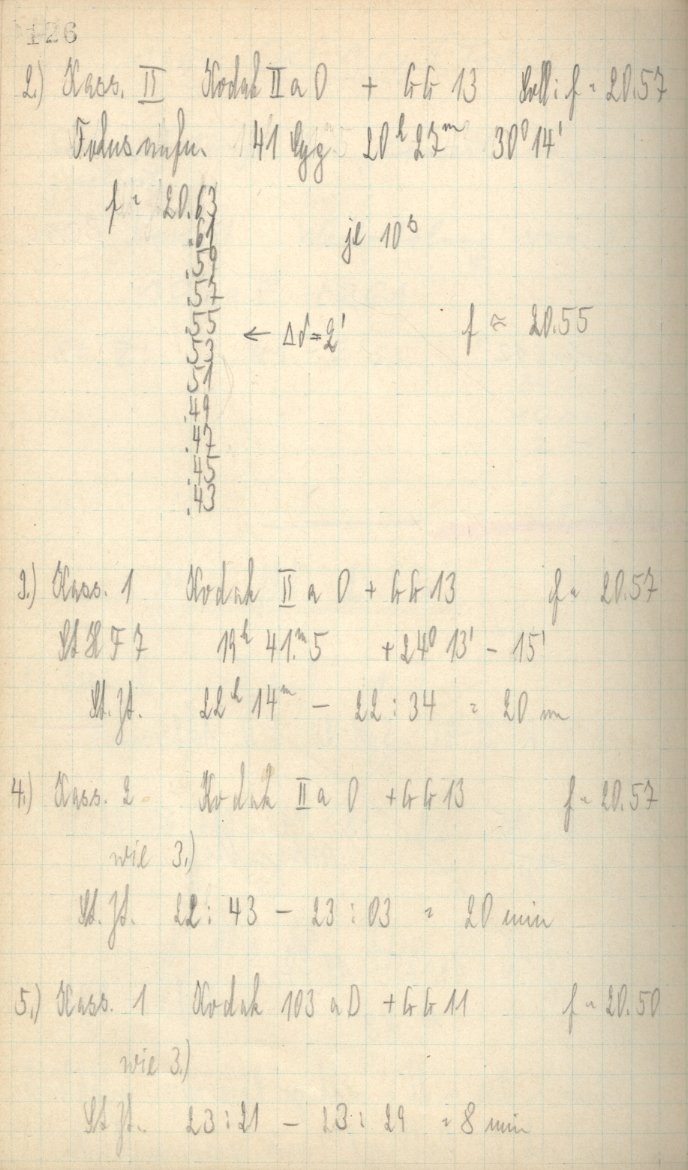 126
2.) Kass. II Kodak II a O + GG 13 Soll: f = 20.57
Fokusaufn. 41 Cyg 20h 27m 30° 14'
f = 20.63
.61 je 10s
.59
.57
.55 ← Δδ = 2' f ≈ 20.55
.53
.51
.49
.47
.45
.43
3.) Kass. 1 Kodak II a O + GG 13 f = 20.57
St H F 7 19h 41m.5 + 24° 13' - 15'
St. Zt. 22h 14m - 22 : 34 = 20 m
4.) Kass. 2 Kodak II a O + GG 13 f = 20.57
wie 3.)
St. Zt. 22 : 43 - 23 : 03 = 20 min
5.) Kass. 1 Kodak 103 a D + GG 11 f = 20.50
wie 3.)
St. Zt. 23 : 21 - 23 : 29 = 8 min